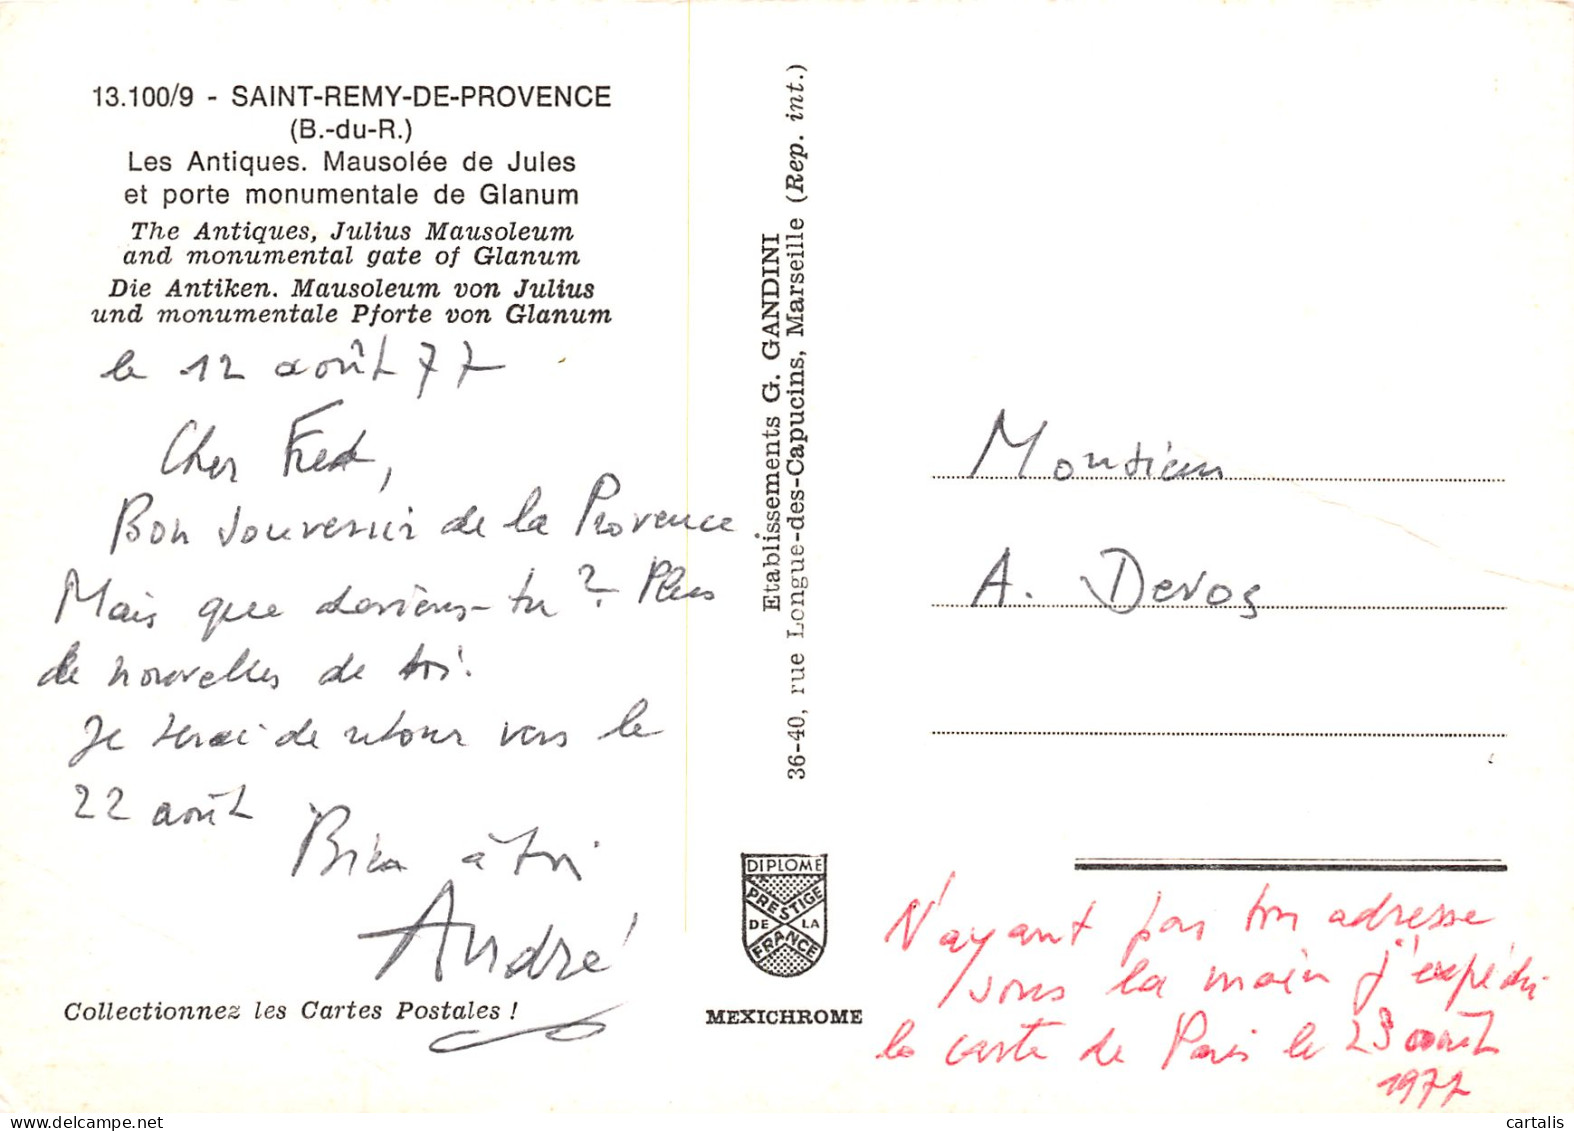 13.100/9 - SAINT-REMY-DE-PROVENCE
(B.-du-R.)
Les Antiques. Mausolée de Jules
et porte monumentale de Glanum
The Antiques, Julius Mausoleum
and monumental gate of Glanum
Die Antiken. Mausoleum von Julius
und monumentale Pforte von Glanum
le 12 août 77
Cher Fred,
Bon souvenir de la Provence
Mais que deviens-tu ? Plus
de nouvelles de toi.
Je serai de retour vers le
22 août
Bien à toi
André
Collectionnez les Cartes Postales !
Etablissements G. GANDINI
36-40, rue Longue-des-Capucins, Marseille (Rep. int.)
DIPLOME
PRESTIGE
DE LA
FRANCE
MEXICHROME
Monsieur
A. Devos
N'ayant pas ton adresse
sous la main j'expédie
la carte de Paris le 23 août
1977
cartalis